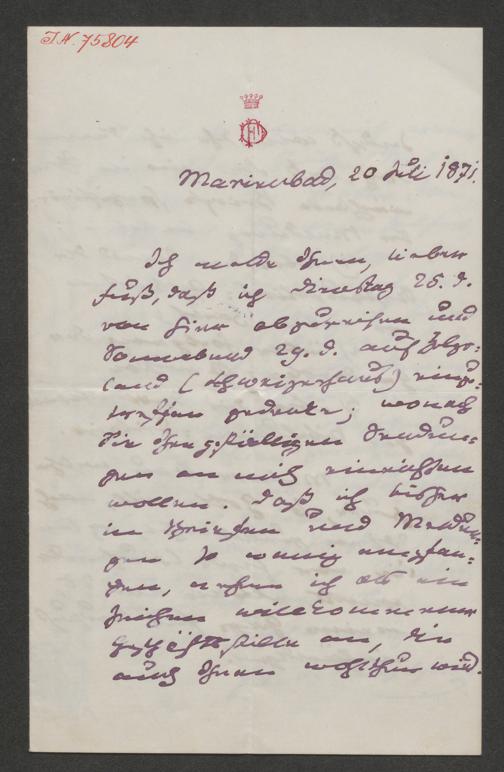 I.N. 75804
Marienbad, 20 Juli 1871.
Ich melde Ihnen, lieber
daß ich Dienstag 25. d.
von hier abzureisen und
Sonnabend 29. d. auf Helgo-
land (Schweizerhaus) einzu-
treffen gedenke; wonach
Sie Ihre gefälligen Sendun-
gen an mich einrichten
wollen. Daß ich bisher
in Briefen und Meldun-
gen so wenig empfan-
gen, nehme ich als ein
Zeichen willkommener
Geschäftsstille an, die
auch Ihnen wohlthun wird.